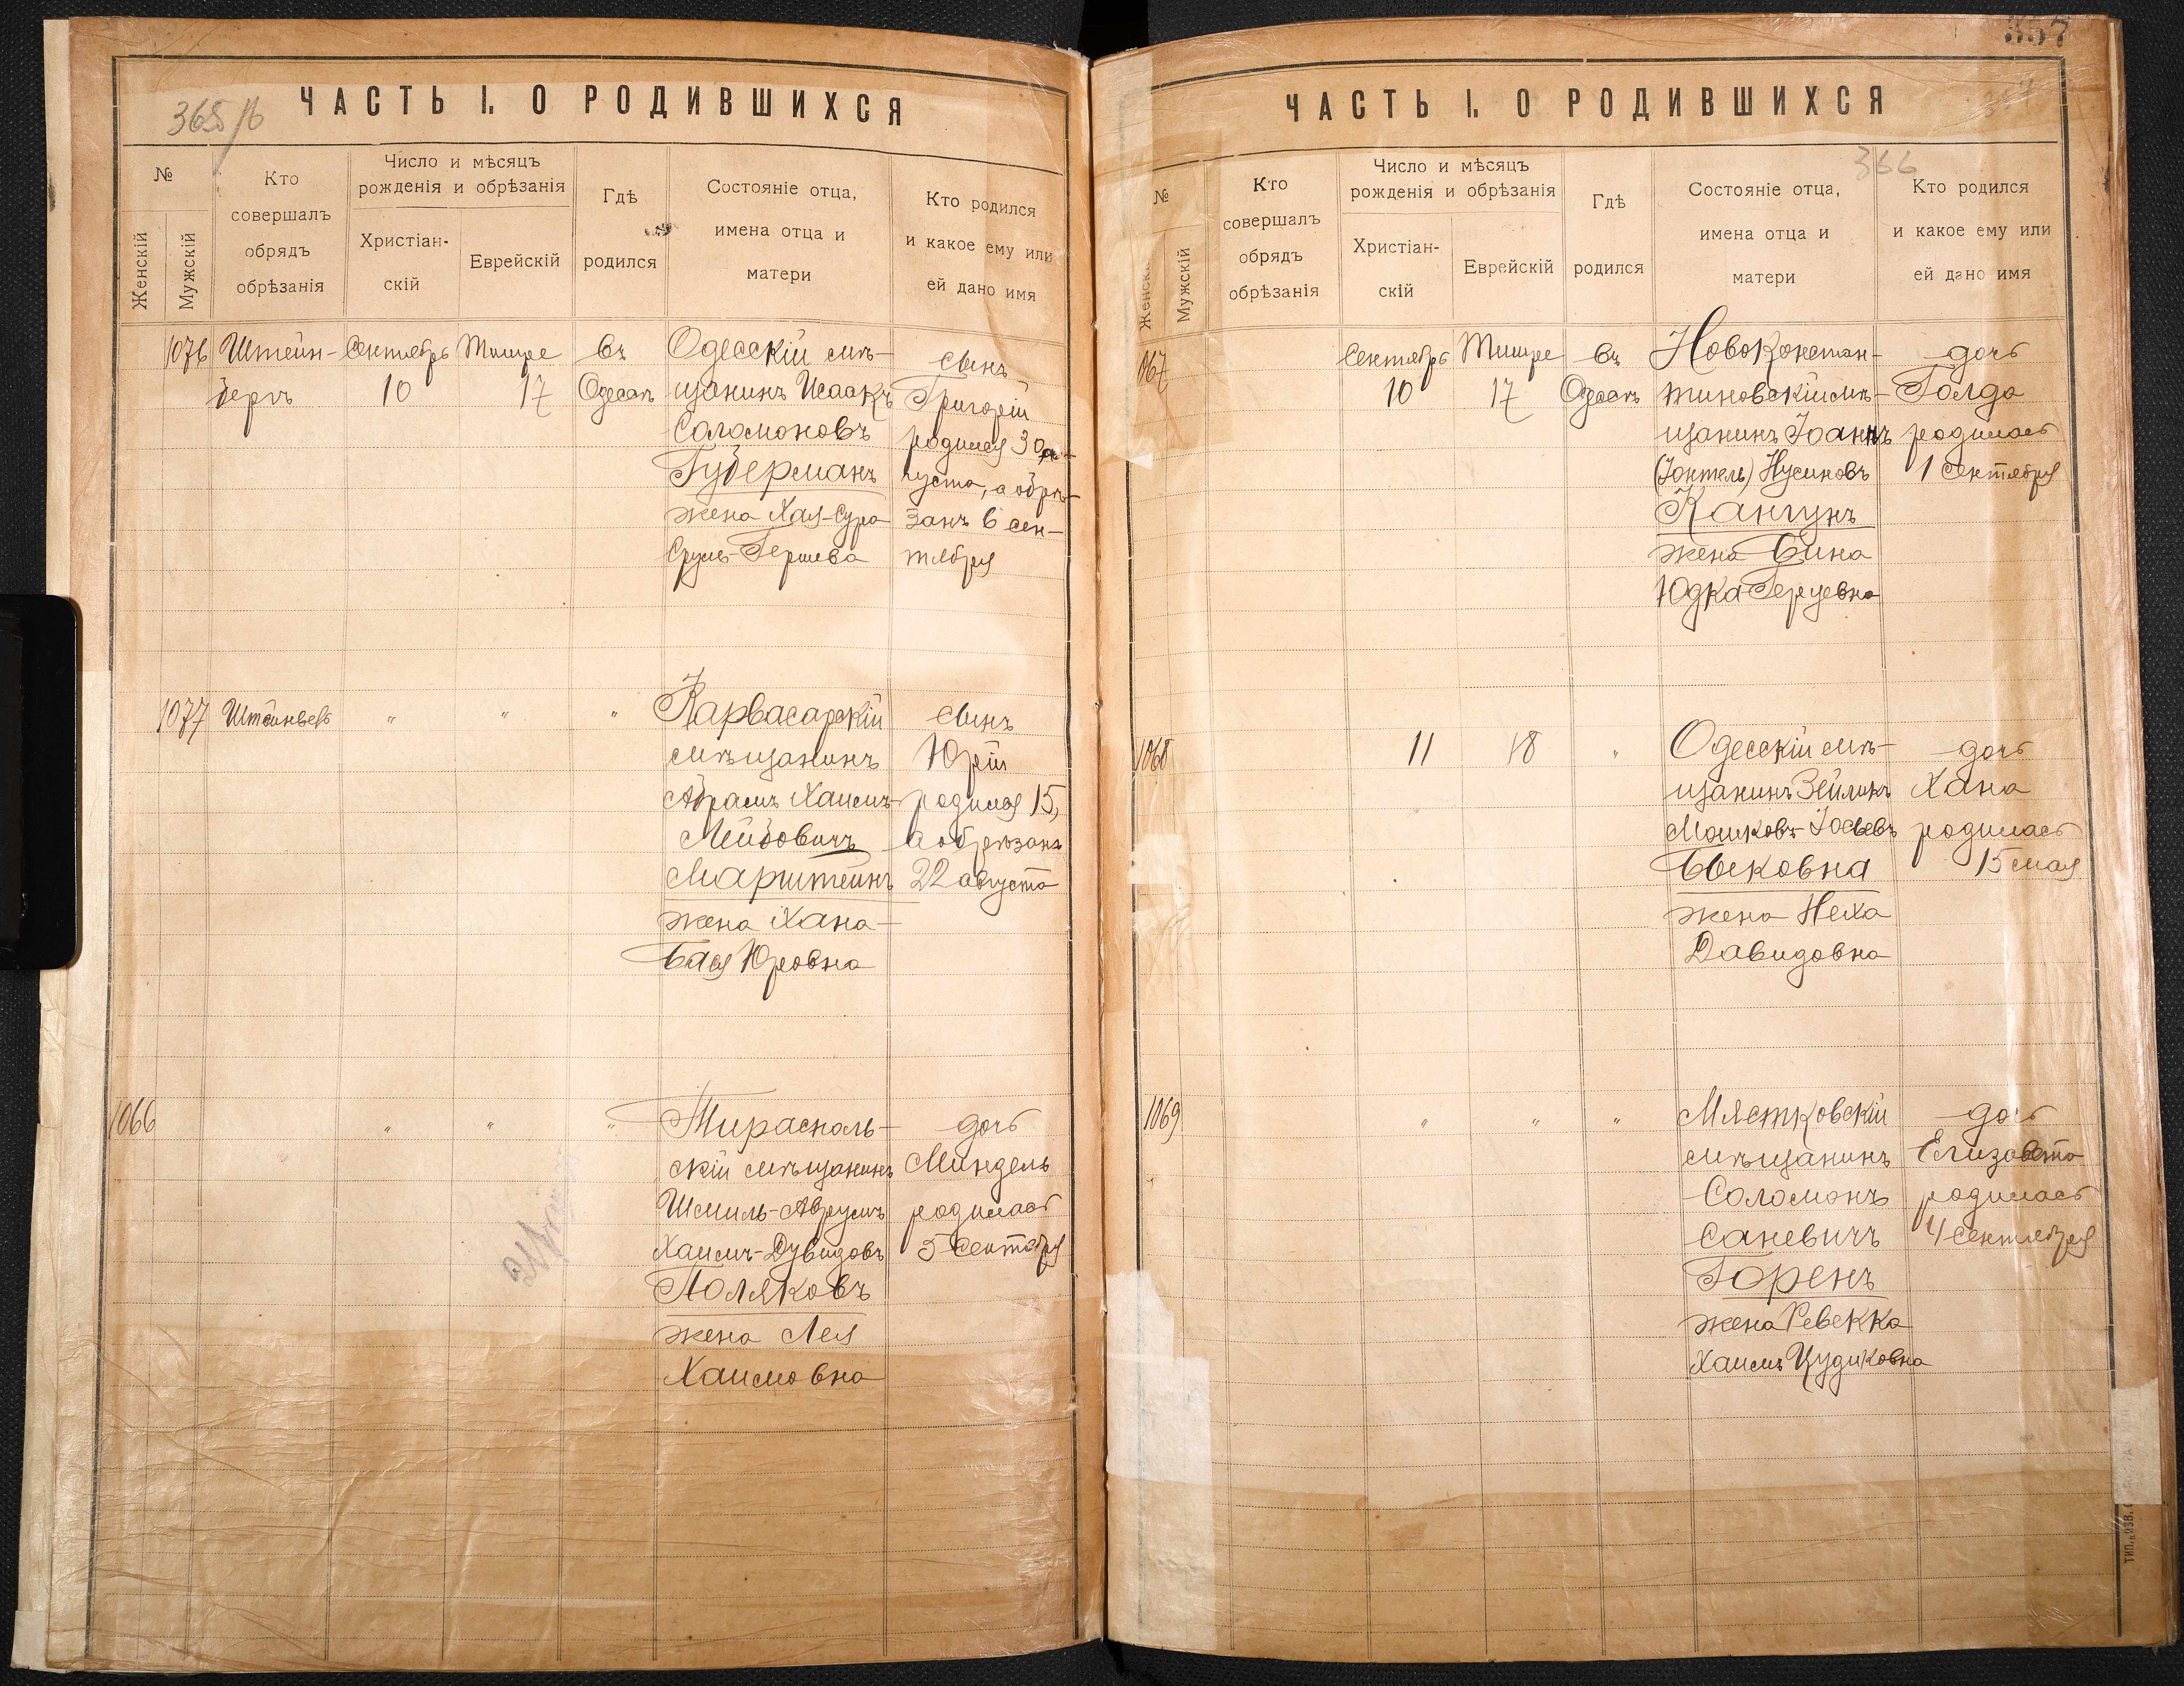 365 об
ЧАСТЬ I. О РОДИВШИХСЯ
№
Женскій
Мужскій
Кто
совершалъ
обрядъ
обрѣзанія
Число и мѣсяцъ
рожденія и обрѣзанія
Христіан-
скій
Еврейскій
Гдѣ
родился
Состояніе отца,
имена отца и
матери
Кто родился
и какое ему или
ей дано имя
1076
Штейн-
бергъ
Сентябрь
10
Тишре
17
Въ
Одессѣ
Одесскій мѣ-
щанинъ Исаакъ
Соломоновъ
Губерманъ
жена Хая-Сура
Сруль-Гершева
сынъ
Григорій
родился 30 ав-
густа, а обрѣ-
занъ 6 сен-
тября
1077
Штейнбергъ
"
"
"
Карвасарскій
мѣщанинъ
Абрамъ Хаимъ-
Лейбовичъ
Марштейнъ
жена Хана-
Бася Юровна
сынъ
Юрій
родился 15,
а обрѣзанъ
22 августа
1066
"
"
"
Тирасполь-
скій мѣщанинъ
Шмиль-Аврумъ
Хаимъ-Дувидовъ
Поляковъ
жена Лея
Хаимовна
дочь
Миндель
родилась
5 Сентября
357
ЧАСТЬ I. О РОДИВШИХСЯ
366
№
Женскій
Мужскій
Кто
совершалъ
обрядъ
обрѣзанія
Число и мѣсяцъ
рожденія и обрѣзанія
Христіан-
скій
Еврейскій
Гдѣ
родился
Состояніе отца,
имена отца и
матери
Кто родился
и какое ему или
ей дано имя
1067
Сентябрь
10
Тишре
17
Въ
Одессѣ
Новоконстан-
тиновскій мѣ-
щанинъ Іоаннъ
(Іонтель) Нусиновъ
Кангунъ
жена Бина
Юдка Герцевна
дочь
Голда
родилась
1 Сентября
1068
11
18
"
Одесскій мѣ-
щанинъ Зейликъ
Мошковъ-Іосевъ
Бековна
жена Неха
Давидовна
дочь
Хана
родилась
15 мая
1069
"
"
"
Мястковскій
мѣщанинъ
Соломонъ
Саневичъ
Горенъ
жена Ревекка
Хаимъ Цудиковна
дочь
Елизавета
родилась
4 Сентября